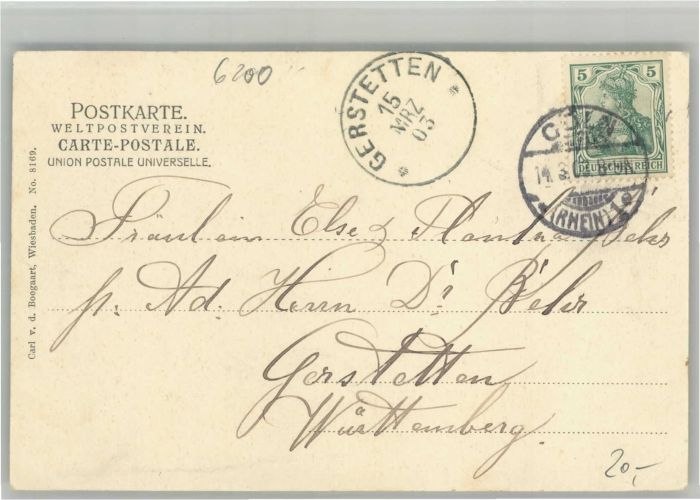 6200
POSTKARTE.
WELTPOSTVEREIN.
CARTE-POSTALE.
UNION POSTALE UNIVERSELLE.
GERSTETTEN
15
MRZ
03
5 5
DEUTSCHES REICH
CÖLN
(RHEIN) 1
Carl v. d. Boogaart, Wiesbaden. No. 8169.
Fräulein Else
p. Ad. Herrn Dr
Gerstetten
Württemberg.
20,-